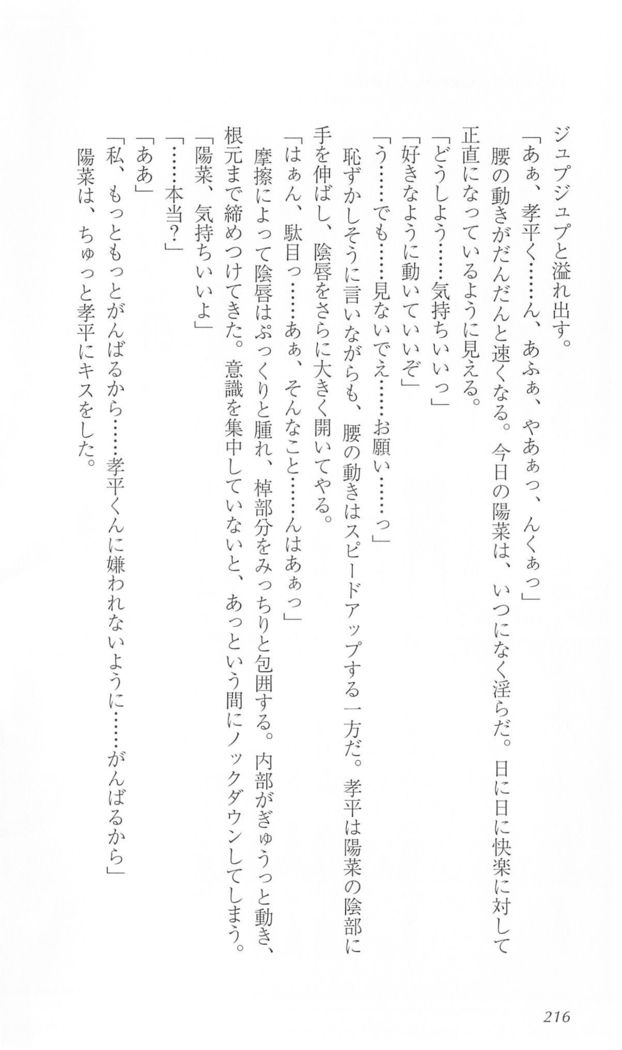 ジュプジュプと溢れ出す。
「あぁ、孝平く……ん、あふぁ、やあぁっ、んくぁっ」
腰の動きがだんだんと速くなる。今日の陽菜は、いつになく淫らだ。日に日に快楽に対して
正直になっているように見える。
「どうしよう……気持ちいいっ」
「好きなように動いていいぞ」
「う……でも……見ないでえ……お願い……っ」
恥ずかしそうに言いながらも、腰の動きはスピードアップする一方だ。孝平は陽菜の陰部に
手を伸ばし、陰唇をさらに大きく開いてやる。
「はぁん、駄目っ……あぁ、そんなこと……んはあぁっ」
摩擦によって陰唇はぷっくりと腫れ、棹部分をみっちりと包囲する。内部がぎゅうっと動き、
根元まで締めつけてきた。意識を集中していないと、あっという間にノックダウンしてしまう。
「陽菜、気持ちいいよ」
「……本当?」
「ああ」
「私、もっともっとがんばるから……孝平くんに嫌われないように……がんばるから」
陽菜は、ちゅっと孝平にキスをした。
216